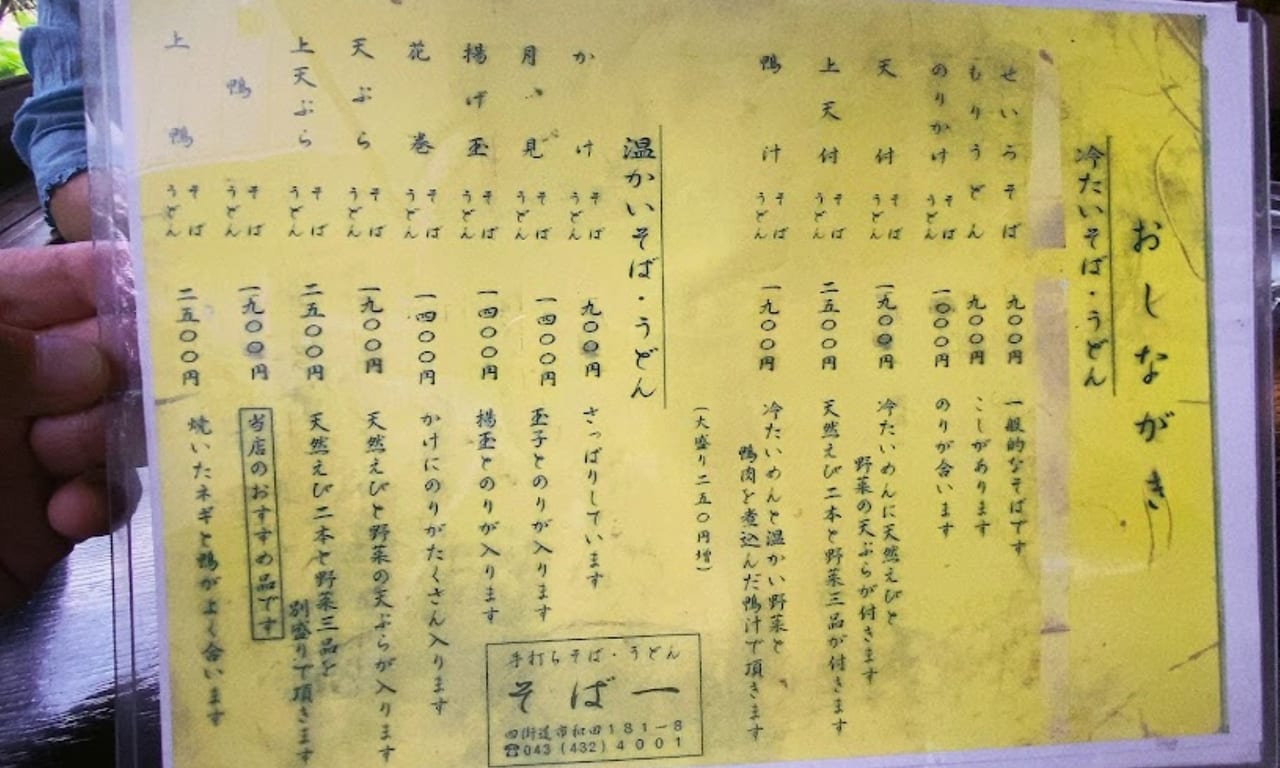 おしながき
冷たいそば・うどん
せいろそば 九〇〇円 一般的なそばです
もりうどん 九〇〇円 こしがあります
のりかけ そば うどん 一〇〇〇円 のりが合います
天付 そば うどん 一九〇〇円 冷たいめんに天然えびと
野菜の天ぷらが付きます
上天付 そば うどん 二五〇〇円 天然えび二本と野菜三品が付きます
鴨汁 そば うどん 一九〇〇円 冷たいめんと温かい野菜と
鴨肉を煮込んだ鴨汁で頂きます
(大盛り二五〇円増)
温かいそば・うどん
かけ そば うどん 九〇〇円 さっぱりしています
月見 そば うどん 一四〇〇円 玉子とのりが入ります
揚げ玉 そば うどん 一四〇〇円 揚玉とのりが入ります
花巻 そば うどん 一四〇〇円 かけにのりがたくさん入ります
天ぷら そば うどん 一九〇〇円 天然えびと野菜の天ぷらが入ります
上天ぷら そば うどん 二五〇〇円 天然えび二本と野菜三品を
別盛りで頂きます
鴨 そば うどん 一九〇〇円 当店のおすすめ品です
上鴨 そば うどん 二五〇〇円 焼いたネギと鴨がよく合います
手打ちそば・うどん
そば一
四街道市和田181-8
☎043(432)4001